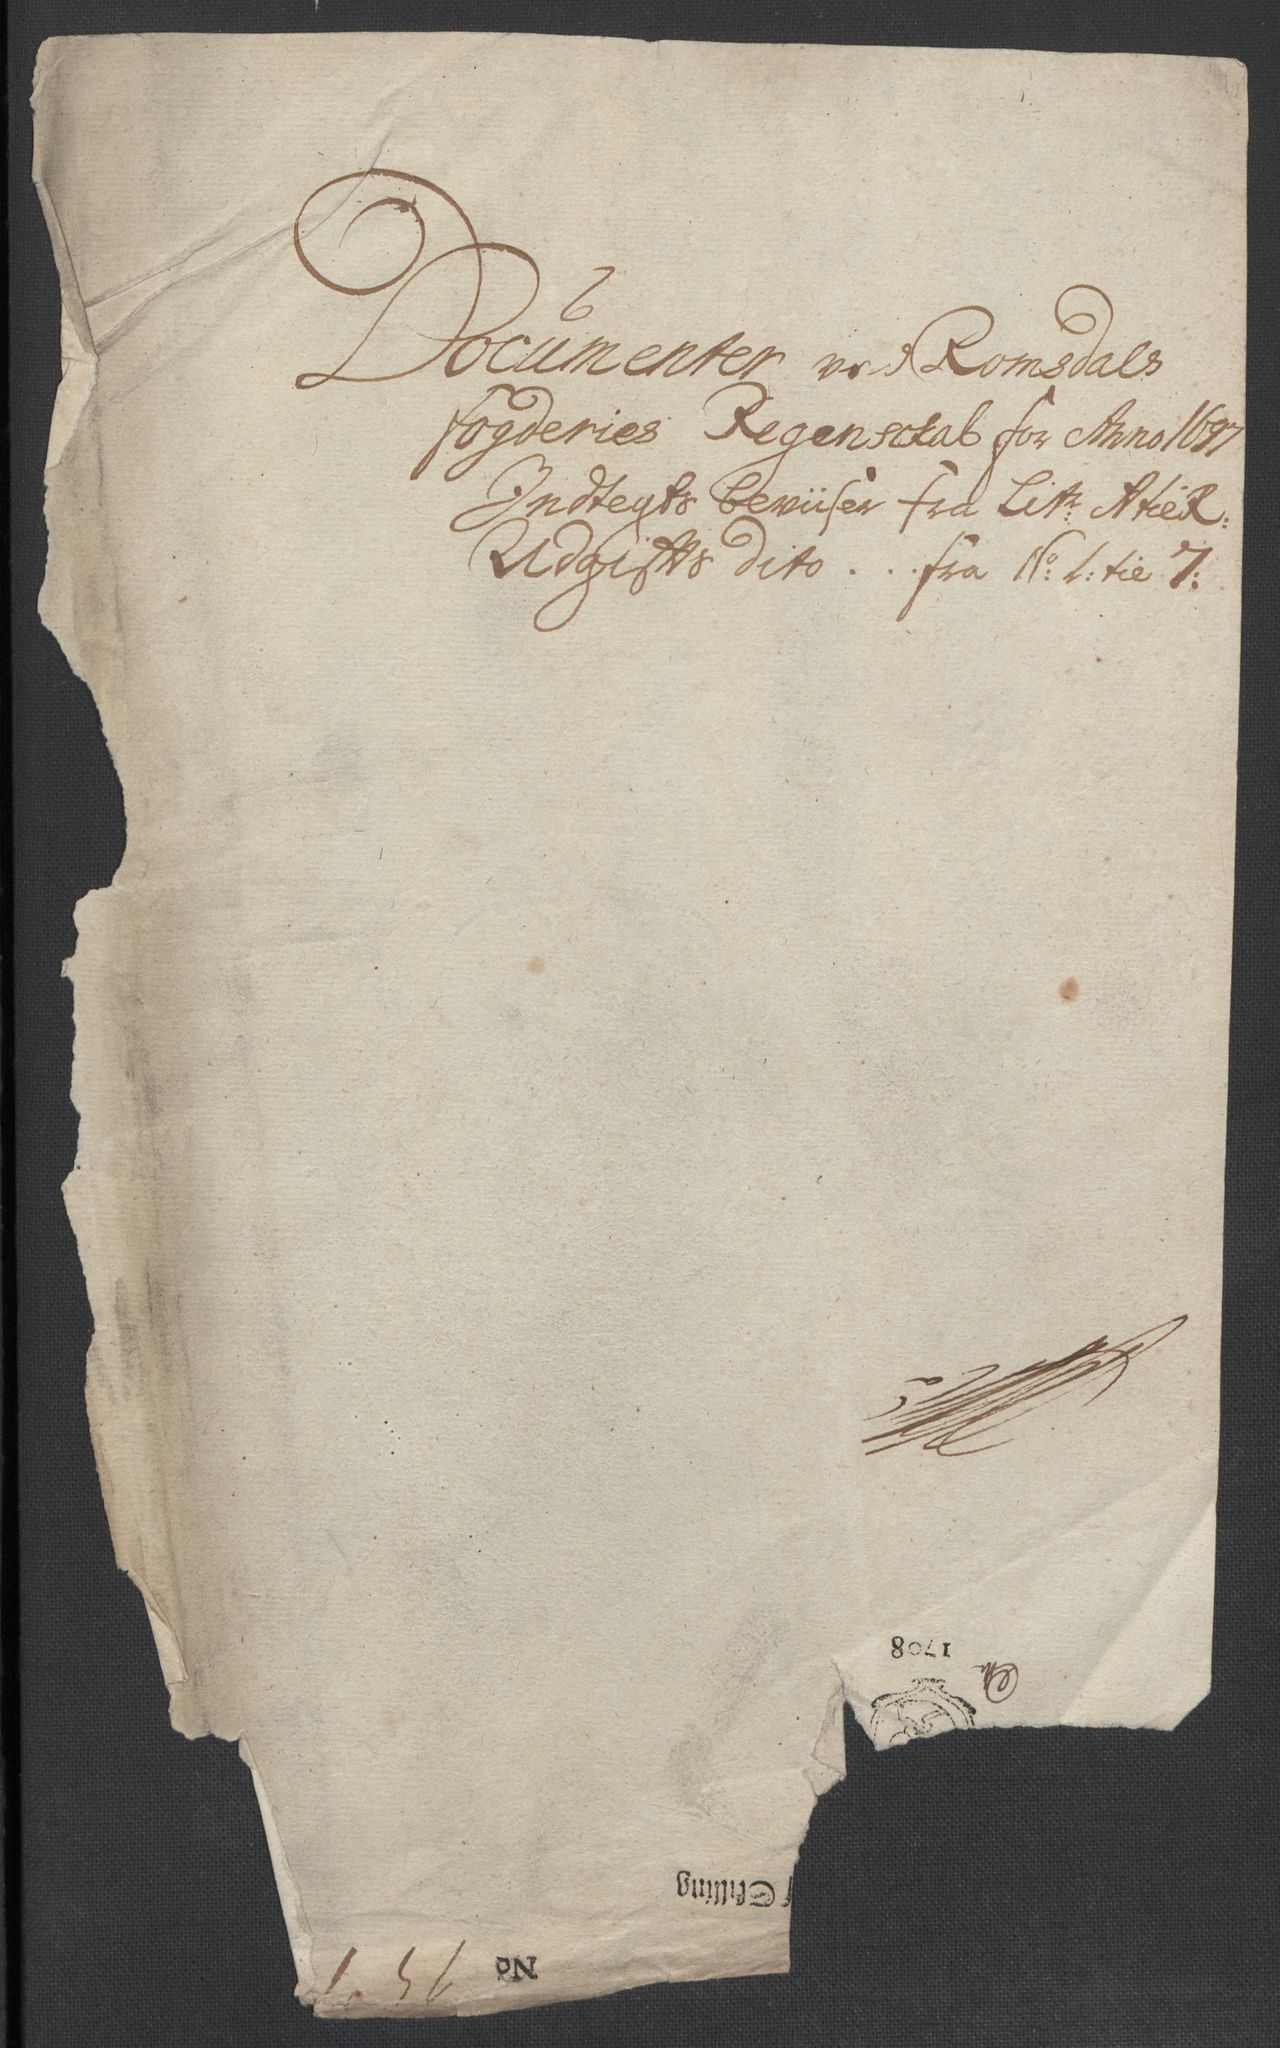 Documenter ved Romsdals
fogderies Regenskab for Anno 1697
Indtegts beviiser fra Litr: A tie R:
Udgiffts dito . . . fra No: 1: tie 7:
1708
Skilling
No